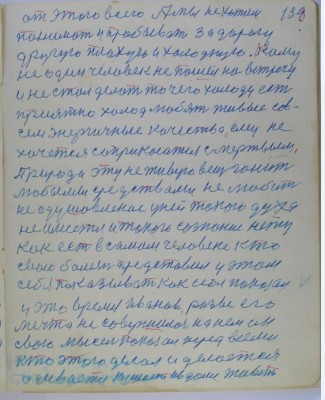 от этого всего А мы не хотим 138
понимать и пробивать за дорогу
другую плохую и холодную. К кому
не один человек не пошел на встречу
и не стал делать то чего холоду есть
приятно холод любят живые сов-
сем энергичные качества, ему не
хочется соприкасатся с мертвым,
Природа эту не живую вещ гонит
любыми средствами не любит
не одушовленое у ней такого духа
не имеется и такого сознание нету
как есть в самом человеке кто
свою болезнь представил и этим
себя показывать как он показал
и это время Иванов, разве его
мечта не совершилася и днем он
свого мысля показал перед всеми
кто этого делал и делается
живать